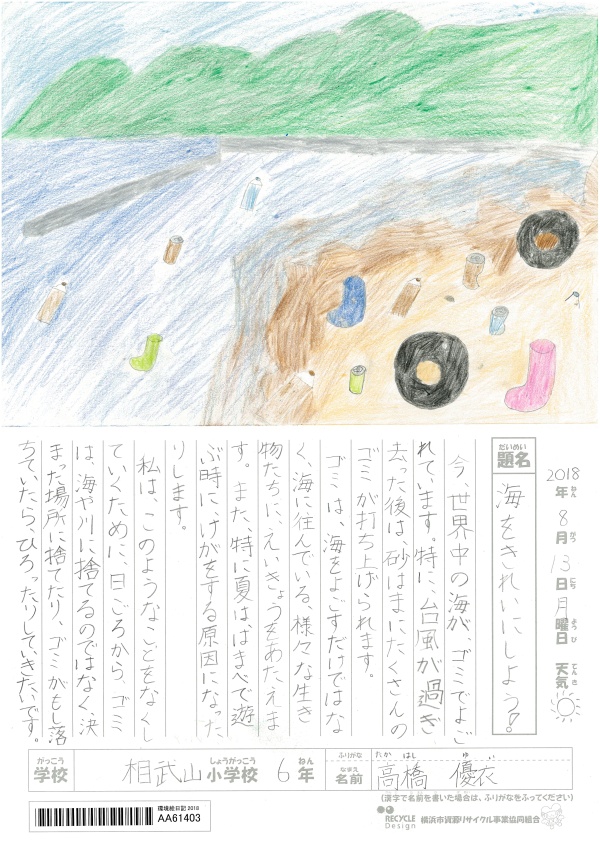 2018年8月13日月曜日 天気
ねん がつ にち ようび てんき
だいめい
題名
海をきれいにしよう!
今、世界中の海が、ゴミでよご
れています。特に、台風が過ぎ
去った後は、砂はまにたくさんの
ゴミが打ち上げられます。
ゴミは、海をよごすだけではな
く、海に住んでいる、様々な生き
物たちに、えいきょうをあたえま
す。また、特に夏は、はまべで遊
ぶ時に、けがをする原因になった
りします。
私は、このようなことをなくし
ていくために、日ごろから、ゴミ
は、海や川に捨てるのではなく決
まった場所に捨てたり、ゴミがもし落
ちていたら、ひろったりしていきたいです。
がっこう しょうがっこう ねん
学校 相武山小学校 6年
ふりがな たかはし ゆ
なまえ
名前 高橋 優衣
(漢字で名前を書いた場合は、ふりがなをふってください)
環境絵日記 2018
AA61403
RECYCLE Design 横浜市資源リサイクル事業協同組合